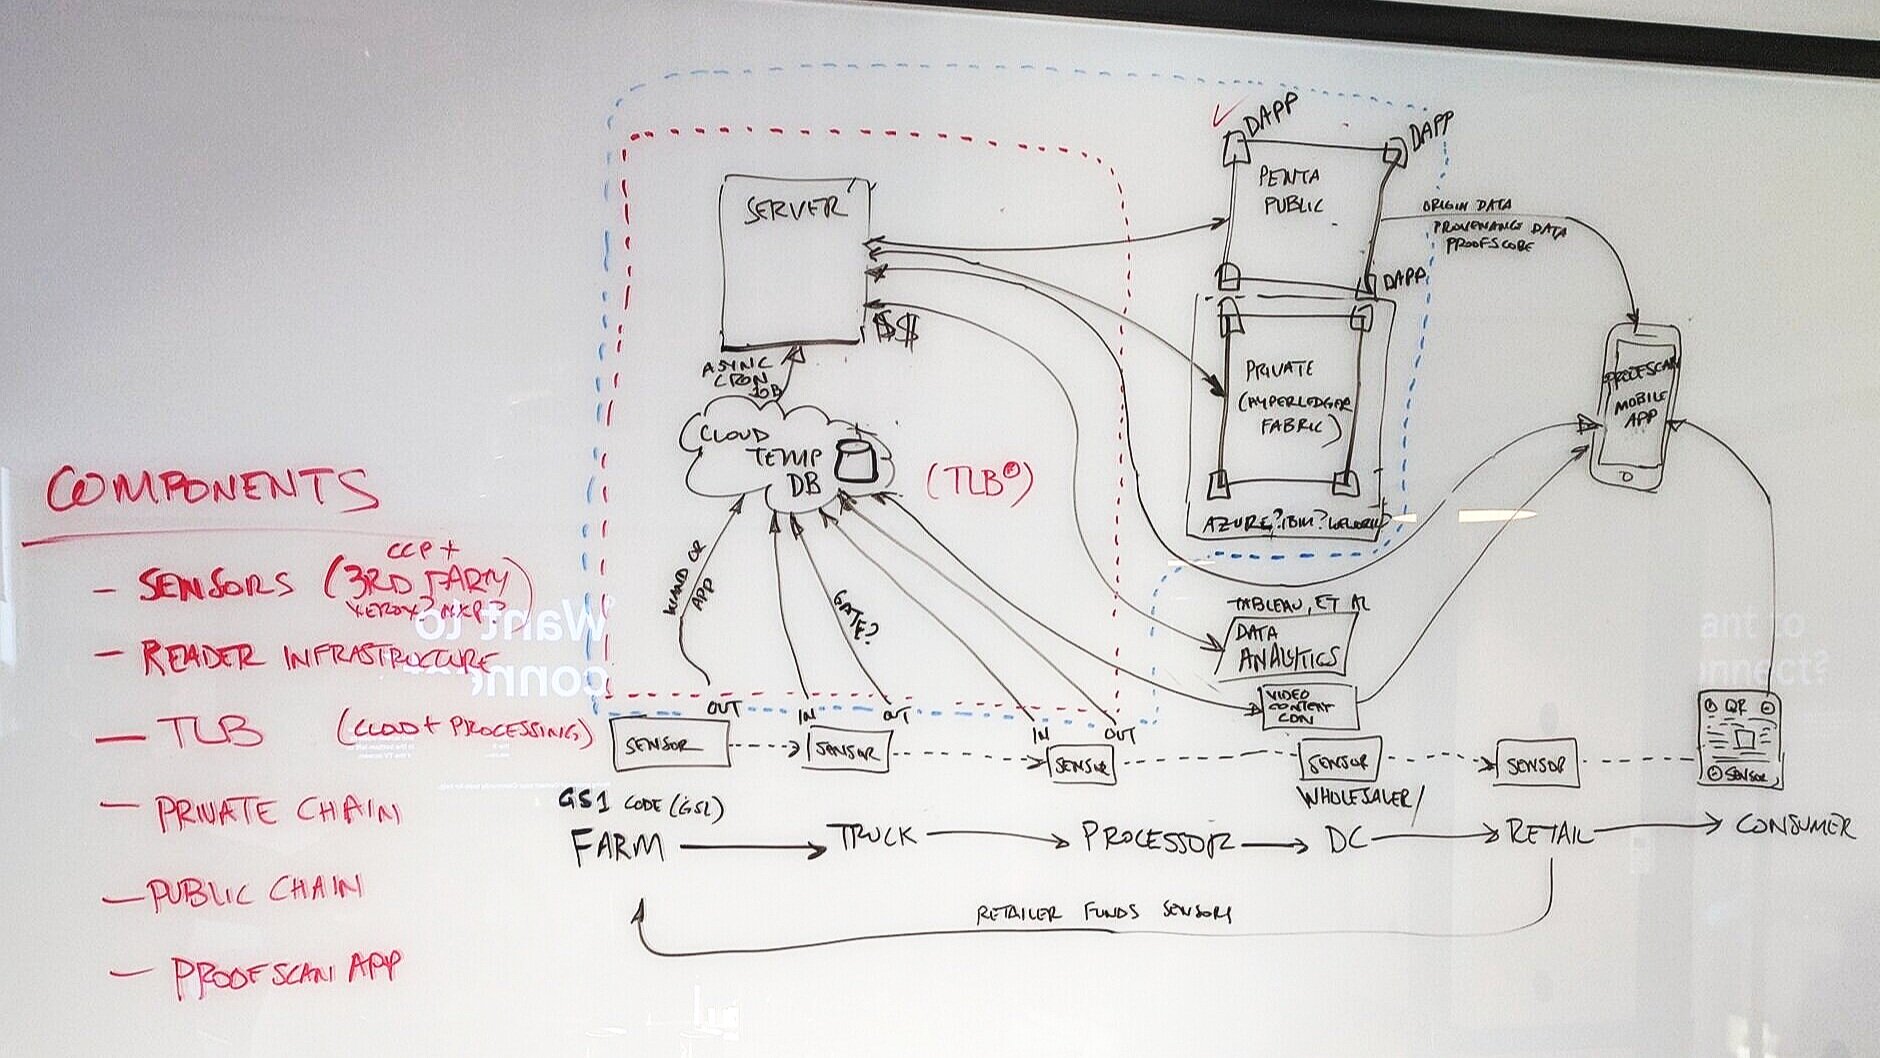 DAPP
DAPP
PENTA
PUBLIC
DAPP
ORIGIN DATA
PROVENANCE DATA
PROOFSCORE
SERVER
$$
ASYNC
CRON
JOB
CLOUD
TEMP
DB
(TLB®)
PRIVATE
(HYPERLEDGER
FABRIC)
AZURE? IBM?
PROOFSCAN
MOBILE
APP
WAND OR
APP
GATE?
TABLEAU, ET AL
DATA
ANALYTICS
VIDEO
CONTENT
CDN
COMPONENTS
CCP +
- SENSORS (3RD PARTY)
XEROX? NXP?
- READER INFRASTRUCTURE
- TLB (CLOUD + PROCESSING)
- PRIVATE CHAIN
- PUBLIC CHAIN
- PROOFSCAN APP
Want to
OUT
IN
OUT
IN
OUT
SENSOR
SENSOR
SENSOR
SENSOR
SENSOR
QR
SENSOR
GS1 CODE (GSL)
WHOLESALER/
FARM
TRUCK
PROCESSOR
DC
RETAIL
CONSUMER
RETAILER FUNDS SENSORS